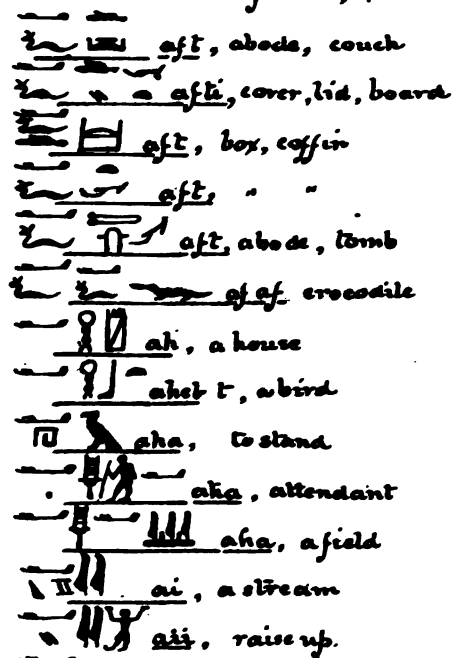 aft, abode, couch
afti, cover, lid, board
aft, box, coffin
aft, " "
aft, abode, tomb
af af crocodile
ah, a house
aheb t, a bird
aha, to stand
aha, attendant
aha, a field
ai, a stream
aii, raise up.